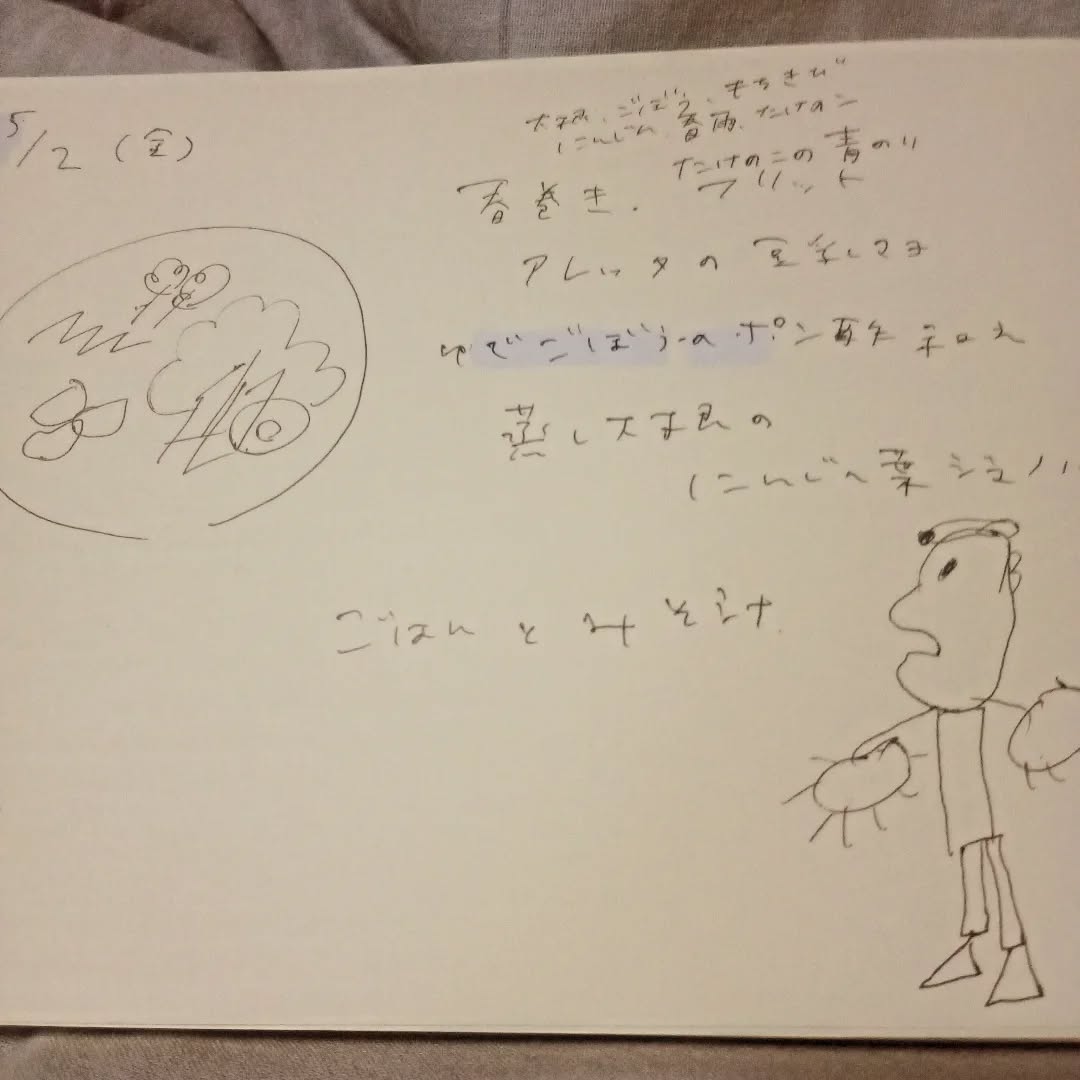 5/2（金）
大根、ごぼう、もちきび
にんじん、春雨、たけのこ
たけのこの青のり
フリット
春巻き、
アレッタの豆乳マヨ
ゆでごぼうのポン酢和え
蒸し大根の
にんじん葉ジェノバ
ごはんとみそ汁